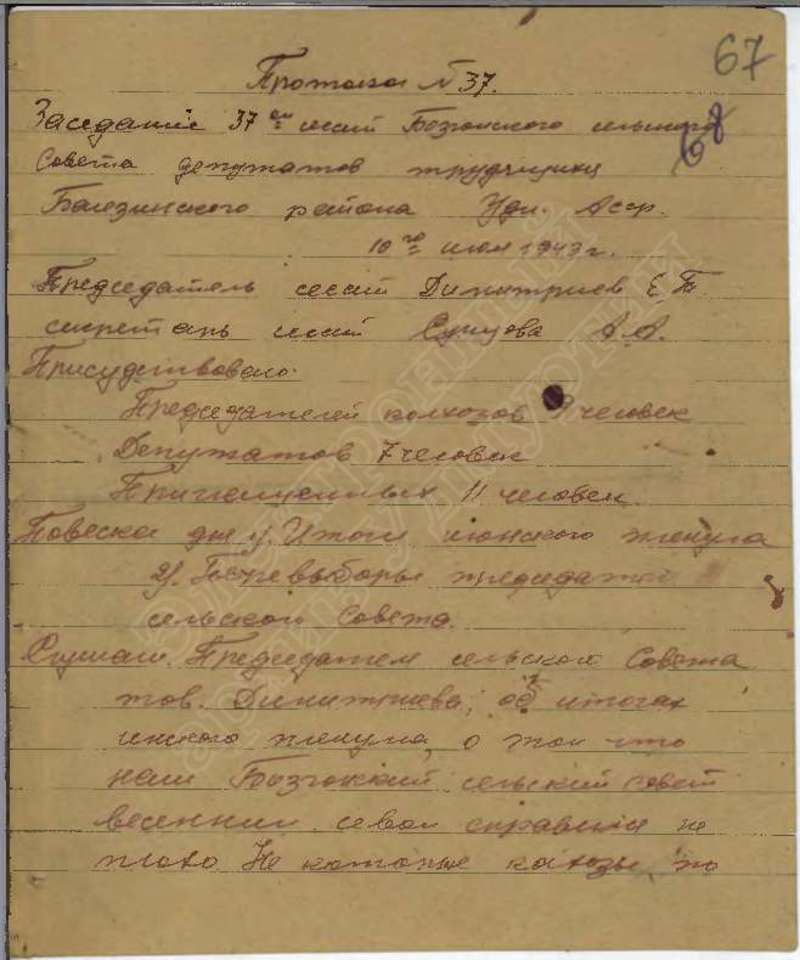 67
68
Протокол N 37.
Заседание 37 ой сесий Безгонского сельского
Совета депутатов трудящихся
Балезинского района Удм. Асср.
10 го июля 1943 г.
Председатель сесий Димитриев Е.
секретарь сесий А.А.
Присутствовало.
Председателей колхозов человек
Депутатов 7 человек
Приглашенных 11 человек.
Повеска дня 1/. Итоги июнского пленума
2/. председателя
сельского Совета.
Слушали. Председателя сельского Совета
тов. Димитриева, об итогах
пленума, о том что
наш сельский совет
весенний севом справился не
плохо Не которые колхозы по